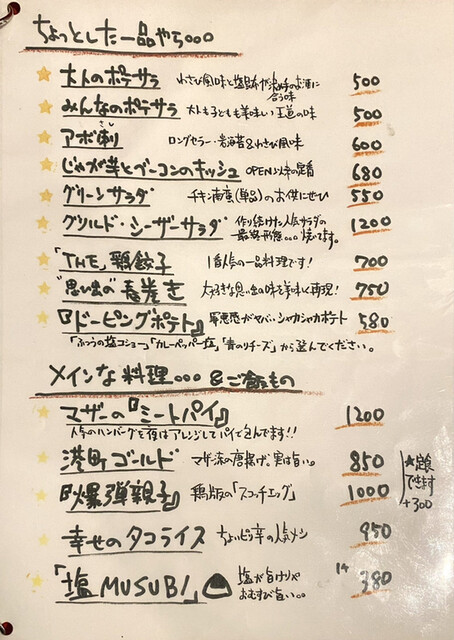 ちょっとした一品やら○○○
大人のポテサラ わさび風味と塩昆布が決め手のお酒に合う味 500
みんなのポテサラ 大人も子どもも美味しい王道の味 500
アボ刺 さし ロングセラー・岩海苔&わさび風味 600
じゃが芋とベーコンのキッシュ OPEN以来の定番 680
グリーンサラダ チキン南蛮(単品)のお供にぜひ 550
グリルド・シーザーサラダ 作り続けた人気サラダの最終形態○○○焼いてます。 1200
「THE」鶏餃子 1番人気の一品料理です! 700
"思い出の"春巻き 大好きな思い出の味を美味しく再現! 750
『ドーピングポテト』 罪悪感がヤバい シャカシャカポテト 580
「ふつうの塩コショー」「カレーペッパー塩」「青のりチーズ」から選んでください。
メインな料理○○○&ご飯もの
マザーの『ミートパイ』 1200
人気のハンバーグを夜はアレンジしてパイで包んでます!!
港町ゴールド マザー流の唐揚げ、実は旨い。 850
『爆弾親子』 鶏版の「スコッチエッグ」 1000
★定食できます +300
幸せのタコライス ちょいピリ辛の人気メシ 950
「塩MUSUBI」 塩が良けりゃおむすび旨い○○ 1ケ 380